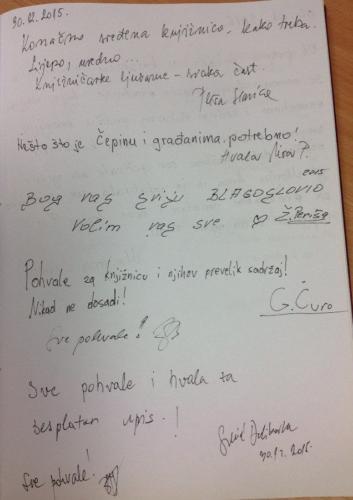 30.12.2015.
Konačno sređena knjižnica, kako treba.
Lijepo, uredno...
Knjižničarke ljubazne - svaka čast.
Nešto što je Čepinu i građanima potrebno!
2015
Bog vas sviju BLAGOSLOVIO
Volim vas sve ♡ Ž. Periša
Pohvale za knjižnicu i njihov prevelik sadržaj!
Nikad ne dosadi!
G. Čuro
Sve pohvale!
Sve pohvale i hvala za
besplatan upis.!
30.12.2015.
Sve pohvale!